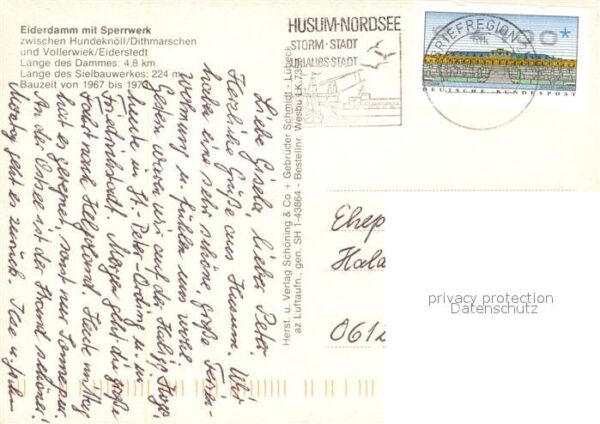 Eiderdamm mit Sperrwerk
zwischen Hundeknöll/Dithmarschen
und Vollerwiek/Eiderstedt
Länge des Dammes: 4,8 km
Länge des Sielbauwerkes: 224 m
Bauzeit von 1967 bis 1973
HUSUM-NORDSEE
STORM-STADT
URLAUBSSTADT
BRIEFREGION
00*
DEUTSCHE BUNDESPOST
Herst. u. Verlag Schöning & Co + Gebrüder Schmidt · Lübeck
az Luftaufn., gen. SH 1-43864 - Bestellnr. Wesbu LK 73
Liebe Gisela, lieber Peter.
Herzliche Grüße aus Husum. Wir
haben eine sehr schöne große Ferien-
wohnung u. fühlen uns wohl.
Gestern waren wir auf der Hallig Hooge
heute in St. Peter-Ording u. in
Friedrichstadt. Morgen geht die große
Fahrt nach Helgoland. Heute
hat es geregnet, sonst nur Sonne
An der Ostsee ist der Strand schöner!
geht es zurück. Ilse u.
Ehep
Hala
0612
privacy protection
Datenschutz